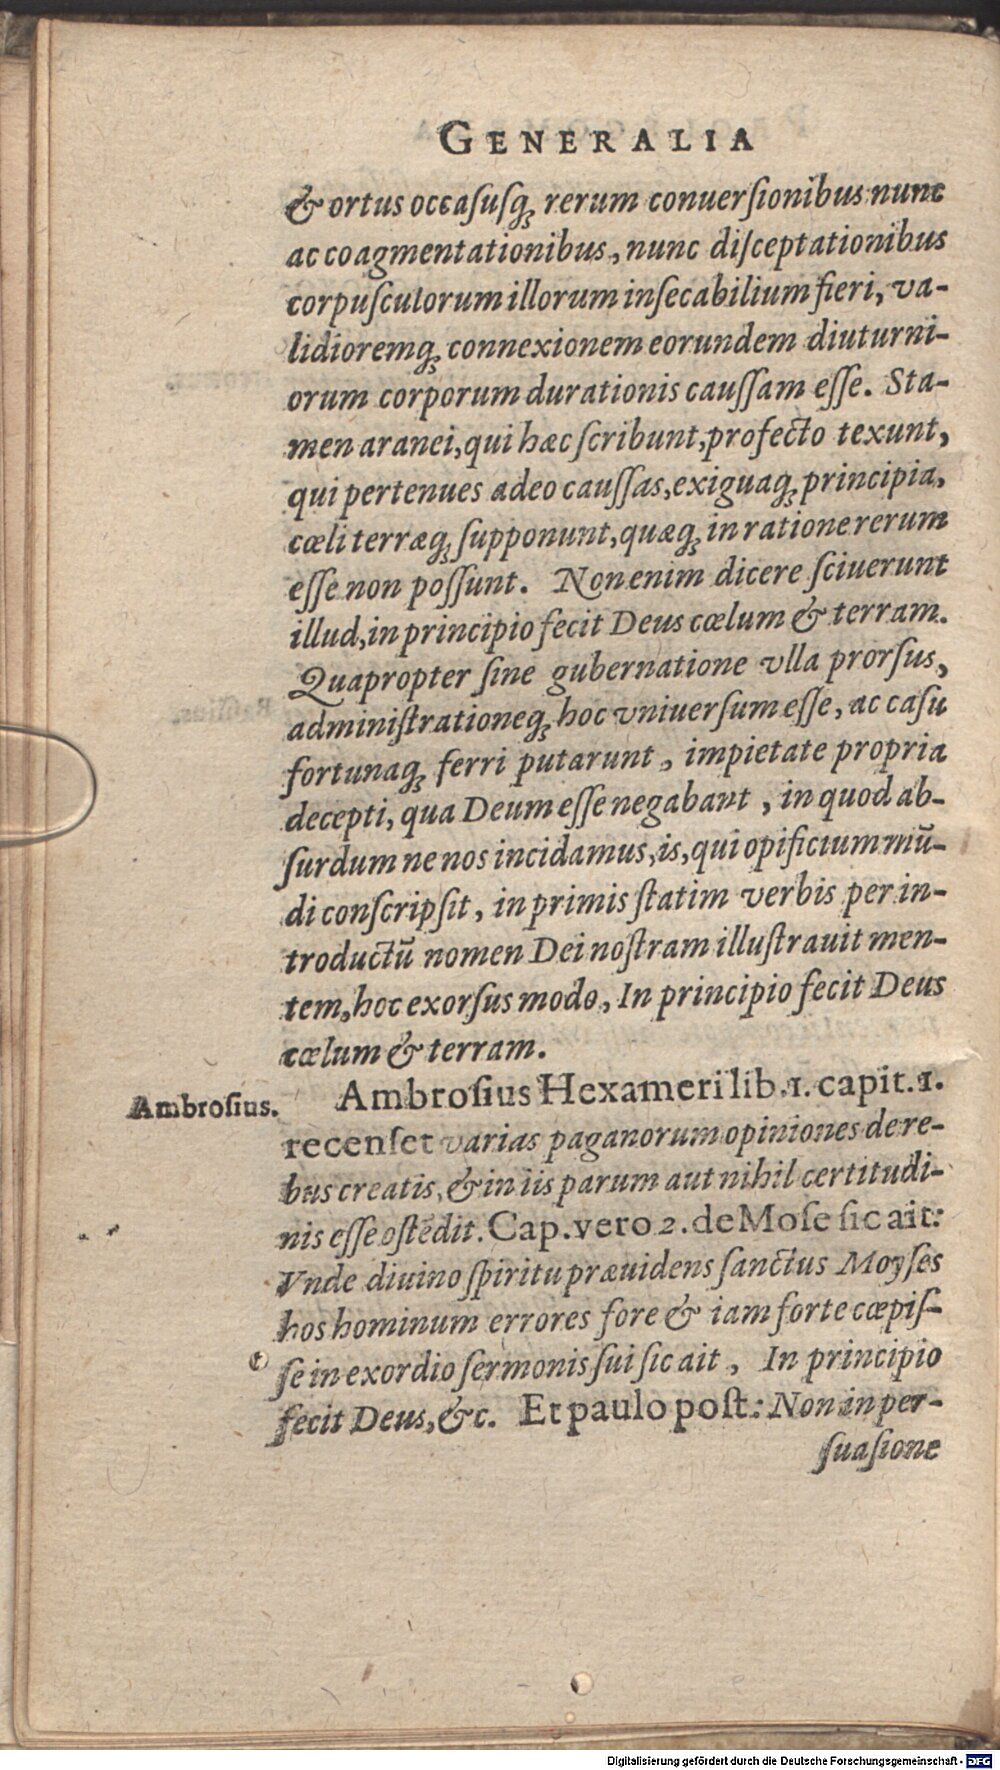 GENERALIA
& ortus occaſuſq́ꝫ rerum conuerſionibus nunc
ac coagmentationibus, nunc diſceptationibus
corpuſculorum illorum inſecabilium fieri, va-
lidioremq́ꝫ connexionem eorundem diuturni-
orum corporum durationis cauſſam eſſe. Sta-
men aranei, qui hæc ſcribunt, profecto texunt,
qui pertenues adeo cauſſas, exiguaq́ꝫ principia,
cœli terræq́ꝫ ſupponunt, quæq́ꝫ in ratione rerum
eſſe non poſſunt. Non enim dicere ſciuerunt
illud, in principio fecit Deus cœlum & terram.
Quapropter ſine gubernatione vlla prorſus,
adminiſtrationeq́ꝫ hoc vniuerſum eſſe, ac caſu
fortunaq́ꝫ ferri putarunt, impietate propria
decepti, qua Deum eſſe negabant, in quod ab-
ſurdum ne nos incidamus, is, qui opificium mū-
di conſcripſit, in primis ſtatim verbis per in-
troductū nomen Dei noſtram illuſtrauit men-
tem, hoc exorſus modo, In principio fecit Deus
cœlum & terram.
Ambroſius. Ambroſius Hexameri lib. 1. capit. 1.
recenſet varias paganorum opiniones de re-
bus creatis, & in iis parum aut nihil certitudi-
nis eſſe oſtēdit. Cap. vero 2. de Moſe ſic ait:
Vnde diuino ſpiritu præuidens ſanctus Moyſes
hos hominum errores fore & iam forte cœpiſ-
ſe in exordio ſermonis ſui ſic ait, In principio
fecit Deus, &c. Et paulo poſt: Non in per-
ſuaſione
Digitalisierung gefördert durch die Deutsche Forschungsgemeinschaft - DFG